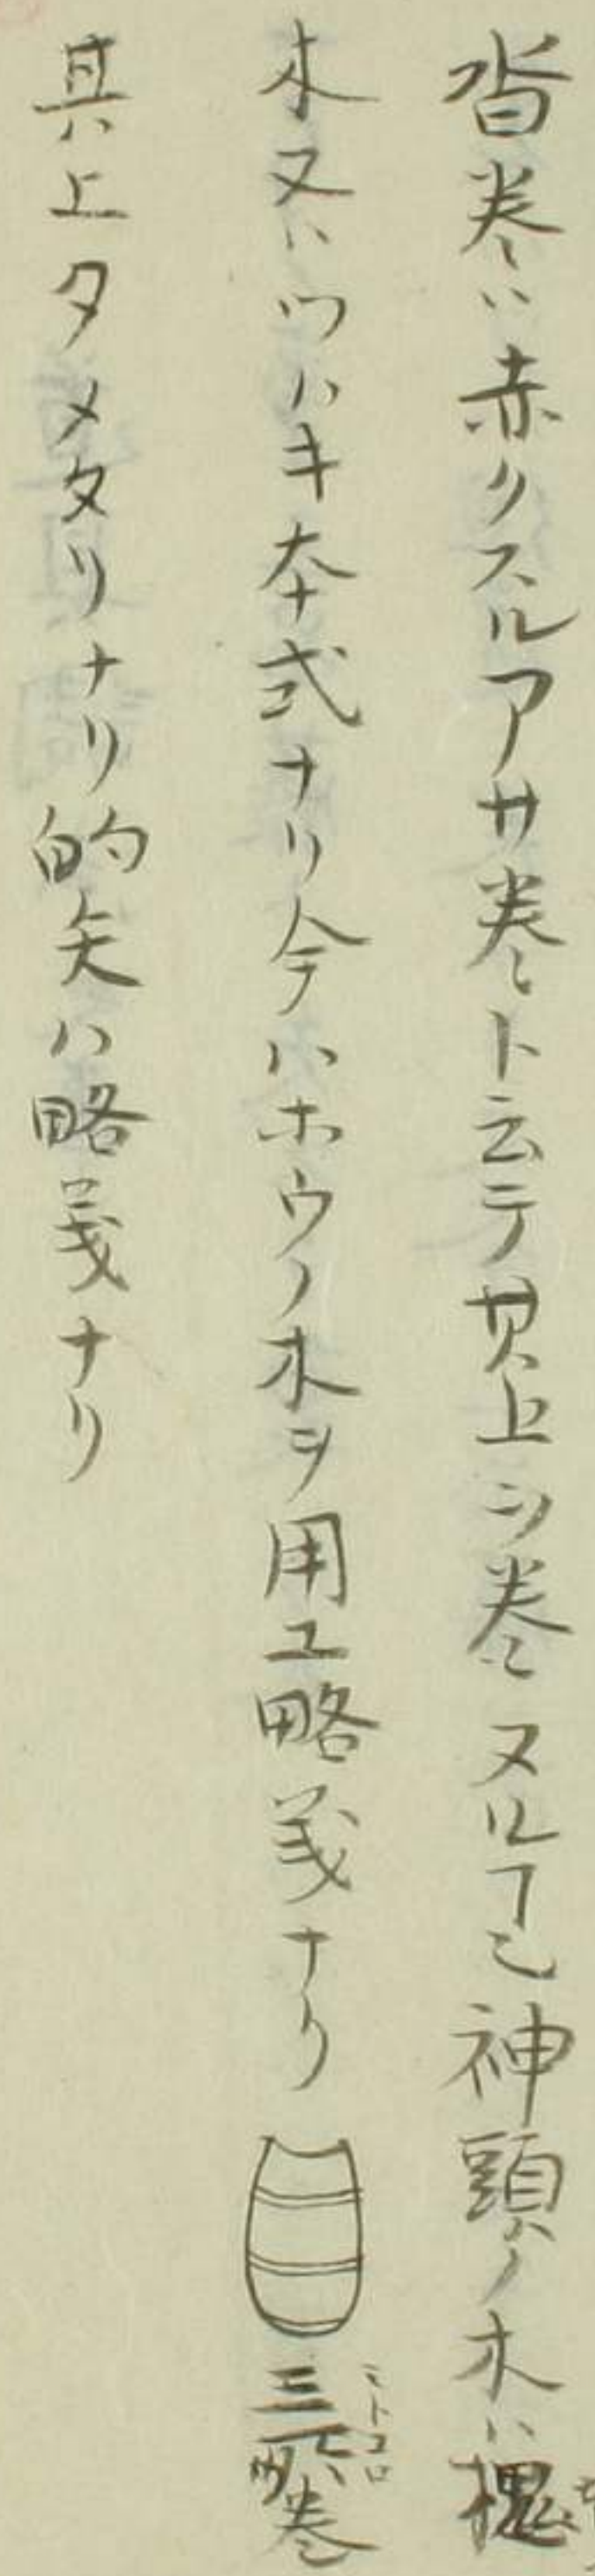 沓巻ハ赤クスルアサ巻ト云テ其上ヲ巻ヌルヿ也神頭ノ木ハ槐
木又ハツハキ本式ナリ今ハホウノ木ヲ用ユ略義ナリ 三所巻
ミトコロ
其上タメタリナリ的矢ハ略義ナリ